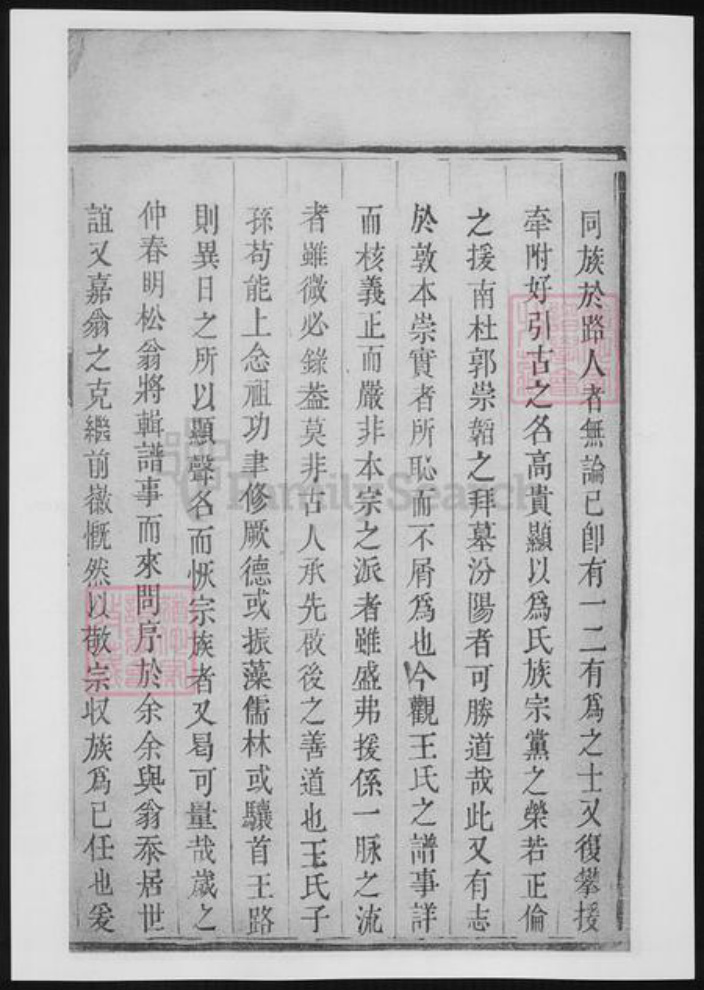 同族於路人者無論已卽有一二有爲之士又復攀援
牽附好引古之名高貴顯以爲氏族宗黨之榮若正倫
之援南杜郭崇韜之拜墓汾陽者可勝道哉此又有志
於敦本崇實者所恥而不屑爲也今觀王氏之譜事詳
而核義正而嚴非本宗之派者雖盛弗援係一脉之流
者雖微必錄葢莫非古人承先啟後之善道也王氏子
孫苟能上念祖功聿修厥德或振藻儒林或驤首王路
則異日之所以顯聲名而恢宗族者又曷可量哉歲之
仲春明松翁將輯譜事而來問序於余余與翁忝居世
誼又嘉翁之克繼前徽慨然以敬宗収族爲已任也爰
FamilySearch